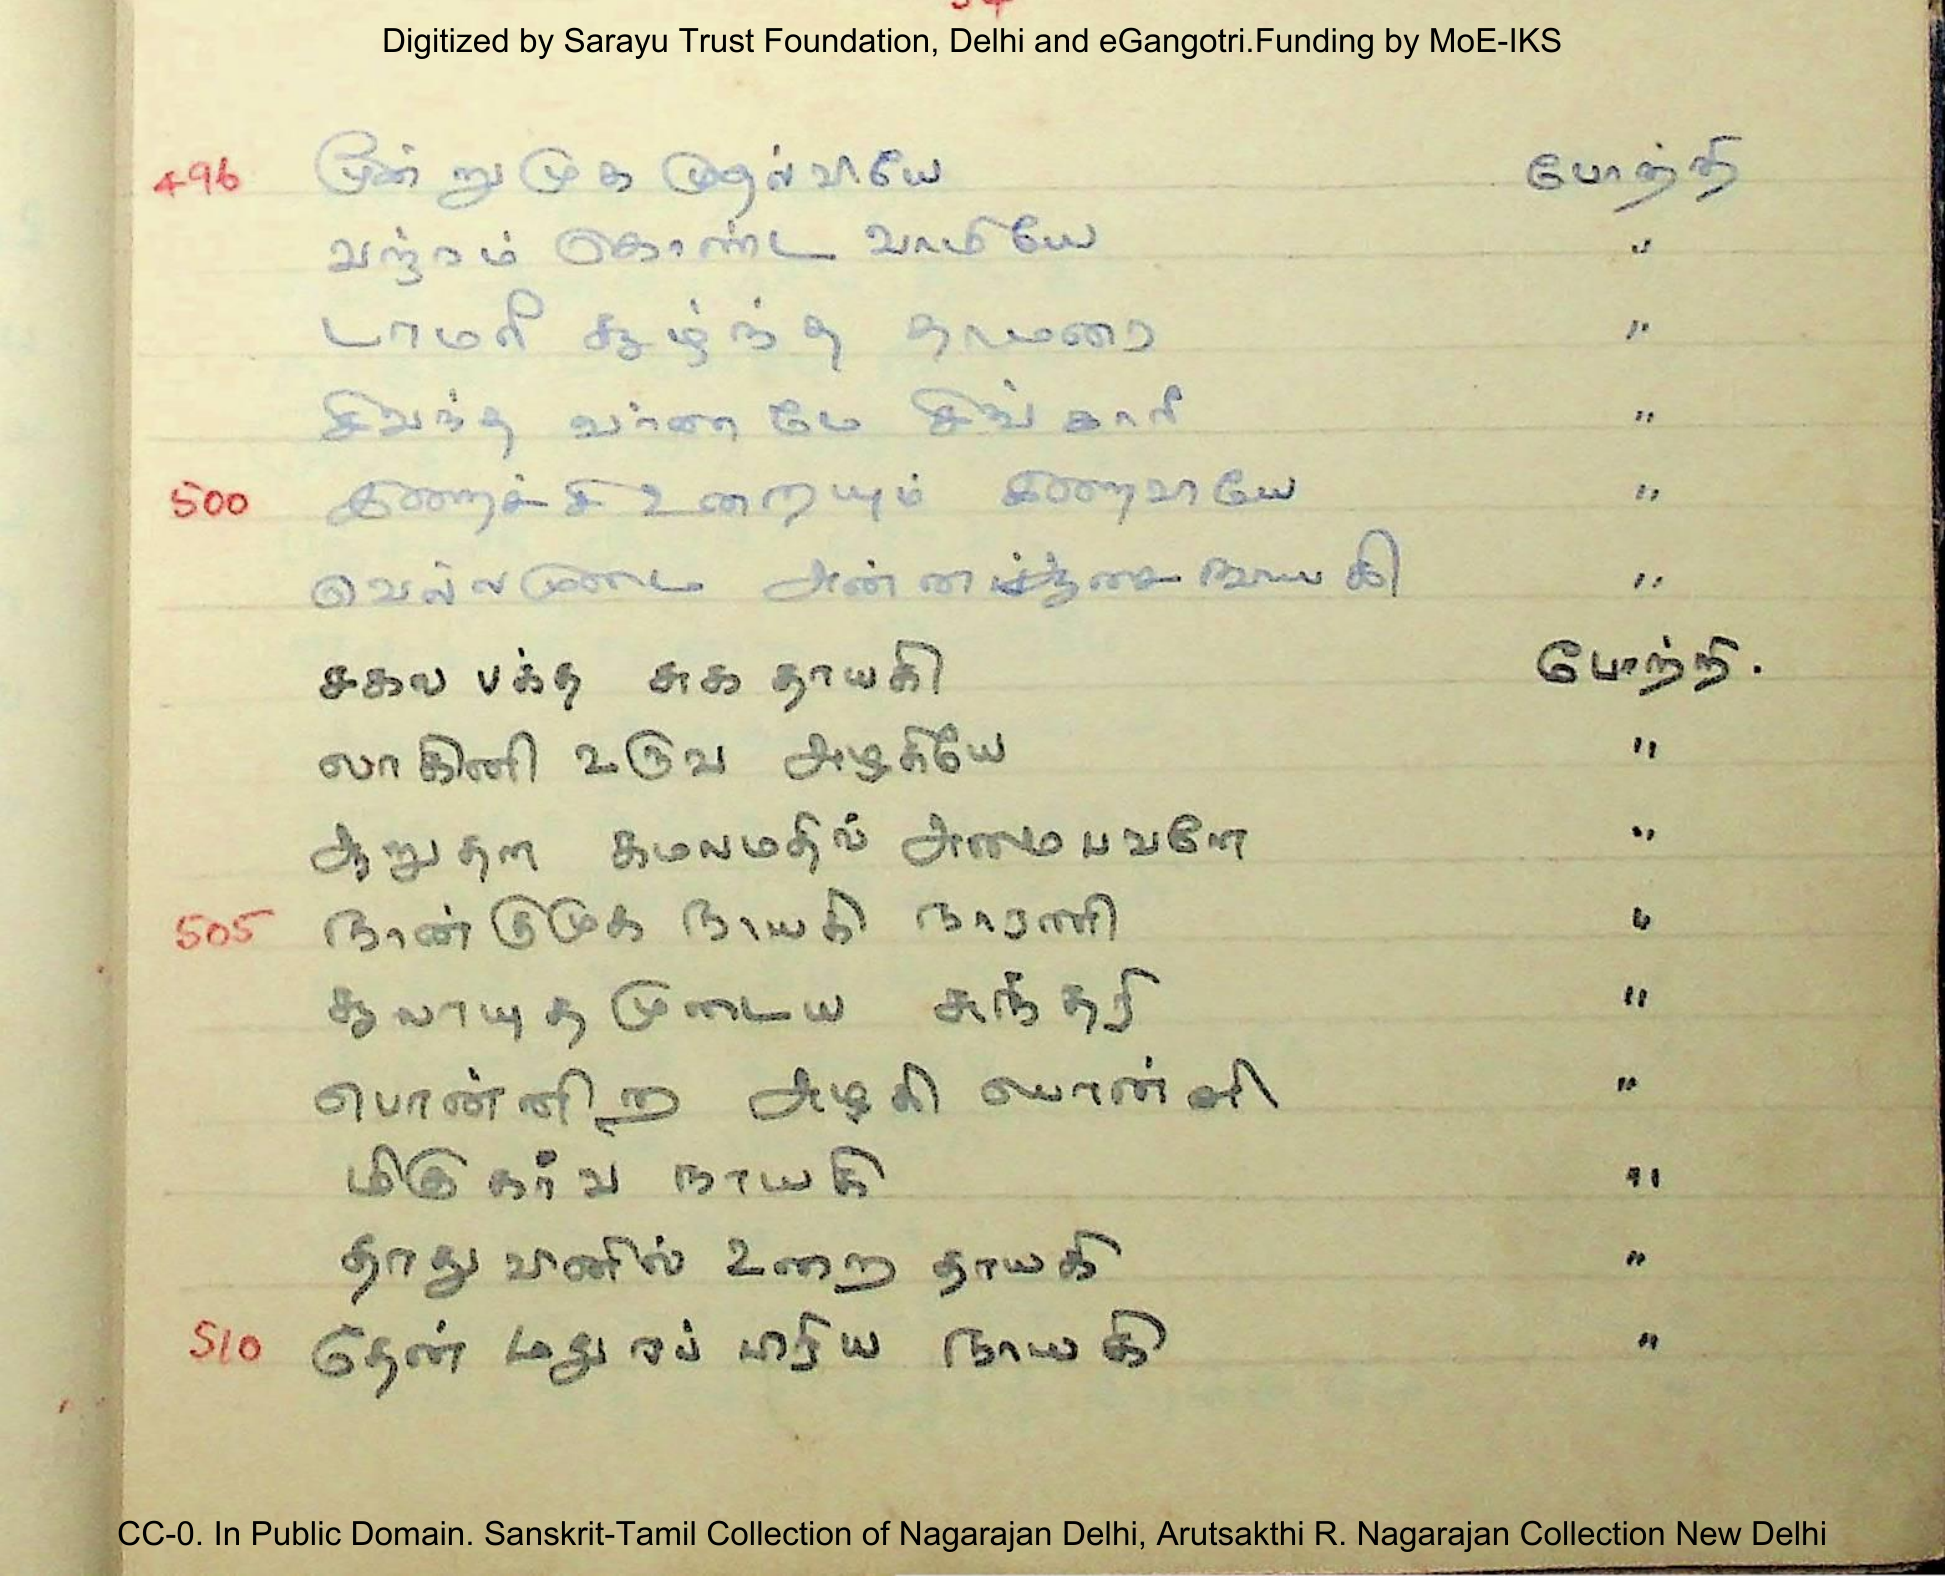 Digitized by Sarayu Trust Foundation, Delhi and eGangotri.Funding by MoE-IKS
496 மூன்றுமுக முதல்வியே போற்றி
வஜ்ரம் கொண்ட வாமியே "
டாமரி சூழ்ந்த தாமரை "
சிவந்த வர்ணமே சிங்காரி "
500 உறையும் "
அன்ன நாயகி "
சகல பக்த சுக தாயகி போற்றி.
லாகினி உருவ அழகியே "
ஆறுதள கமலமதில் அமைபவளே "
505 நான்குமுக நாயகி நாரணி "
சூலாயுத முடைய சுந்தரி "
பொன்னிற அழகி "
மிகு கர்வ நாயகி "
தாது வினில் உறை தாயகி "
510 தேன் மதுரப் பிரிய நாயகி "
CC-0. In Public Domain. Sanskrit-Tamil Collection of Nagarajan Delhi, Arutsakthi R. Nagarajan Collection New Delhi